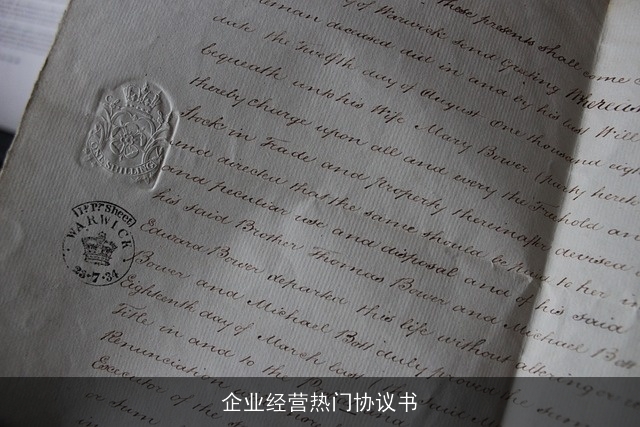 these presents shall come
of Warwick send Greeting Whereas
deceased did in and by his last Will
date the Twelfth day of August One thousand eigh
bequeath unto his Wife Mary Bower (party here
thereby charge upon all and every the Freehold an
Stock in Trade and property thereinafter devised
and directed that the same should be paid to her
and peculiar use and disposal and of his said
his said Brother Thomas Bower and Michael Bott
Edward Bower departed this life without altering or
Bower and Michael Bott duly proved the same
Eighteenth day of March last
Title in and to the
Renunciation
Executor of the
or Sum
ONE SHILLING
Pr Sheet
WARWICK
23·7·34
企业经营热门协议书